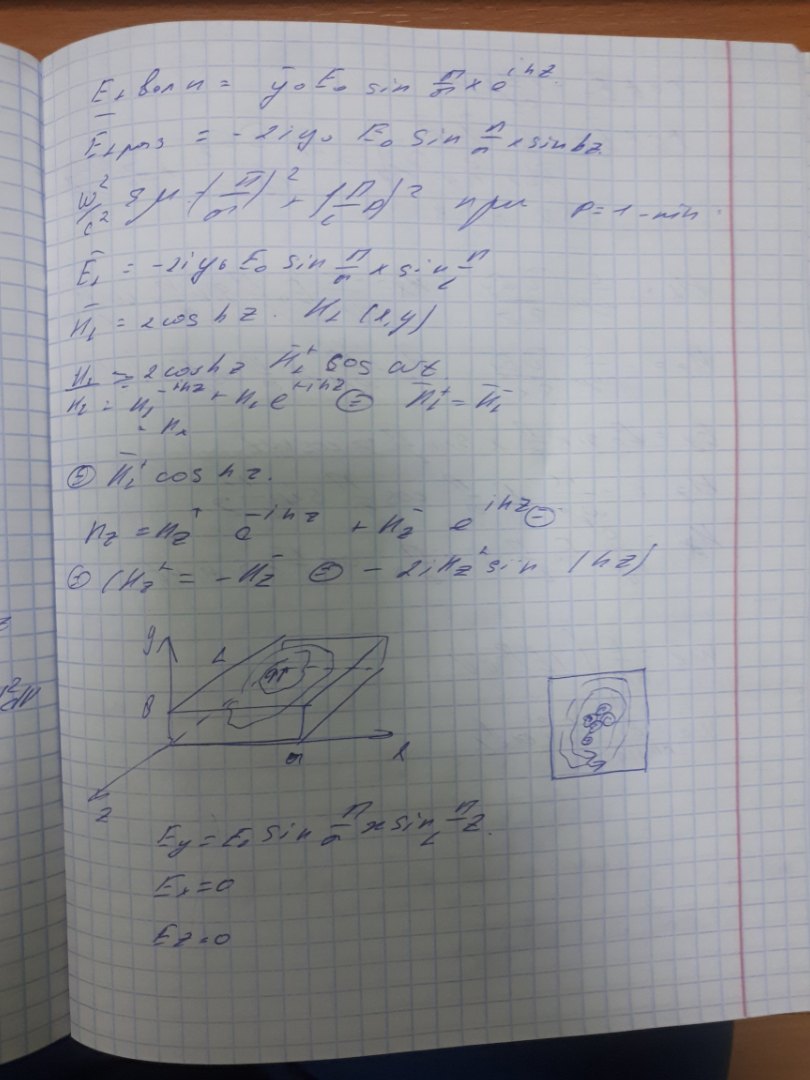 E⊥ волн = ȳ₀ E₀ sin π/a x e^{ihz}
Ē⊥ рез = -2iy₀ E₀ sin π/a x sin hz
ω²/c² εμ = (π/a)² + (π/L p)² при p=1 - min
Ē⊥ = -2iy₀ E₀ sin π/a x sin π/L
H̄⊥ = 2 cos hz · H⊥ (x,y)
H⊥ = 2 cos hz H̄⊥⁺ cos ωt
H⊥ = H⊥ e^{-ihz} + H⊥ e^{-ihz} ⊜ H̄⊥⁺ = H̄⊥⁻
= H⊥
⊜ H̄⊥⁺ cos hz.
Hz = Hz⁺ e^{-ihz} + Hz⁻ e^{ihz} ⊜
⊜ (Hz⁺ = -Hz⁻ ⊜ -2iHz⁺ sin (hz)
y
L
b
a
x
z
Ey = E₀ sin π/a x sin π/L z.
Ex = 0
Ez = 0